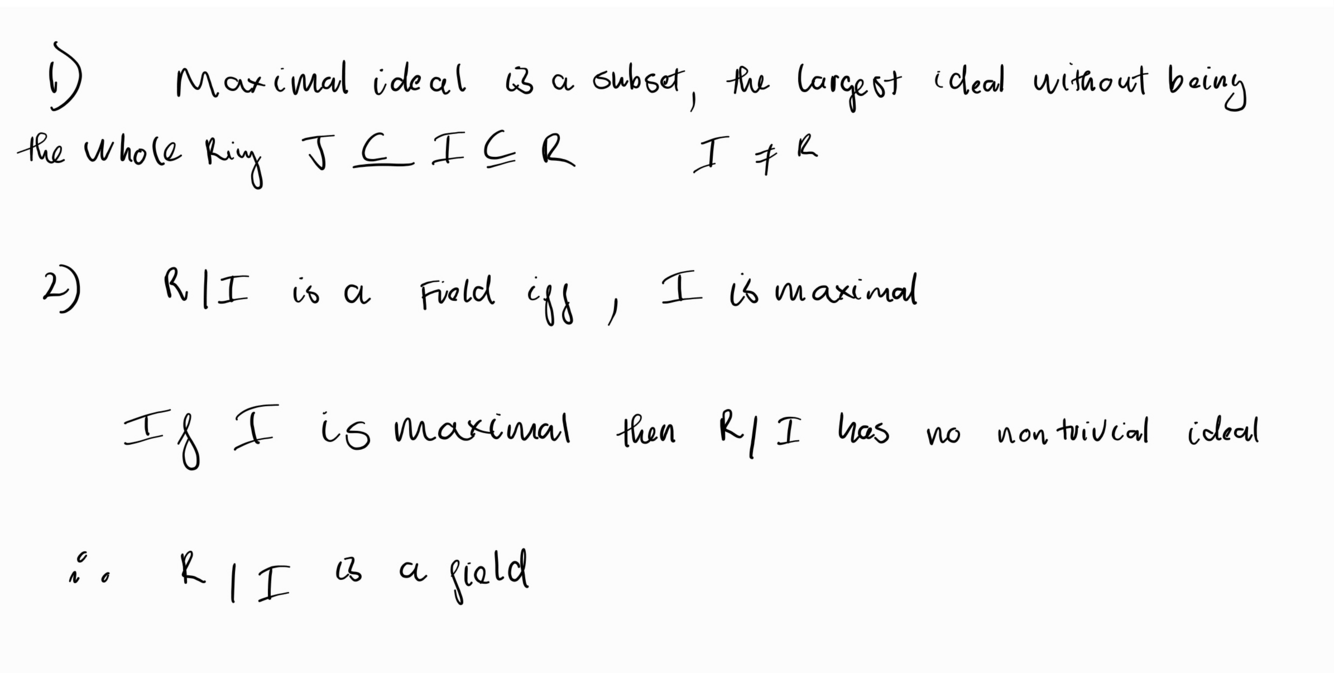 1) Maximal ideal is a subset, the largest ideal without being
the whole Ring J ⊆ I ⊆ R I ≠ R
2) R/I is a Field iff, I is maximal
If I is maximal then R/I has no nontrivial ideal
∴ R/I is a field